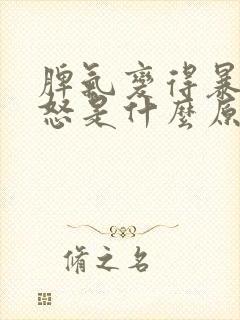 脾氣變得暴
怒是什麼原
脩之名